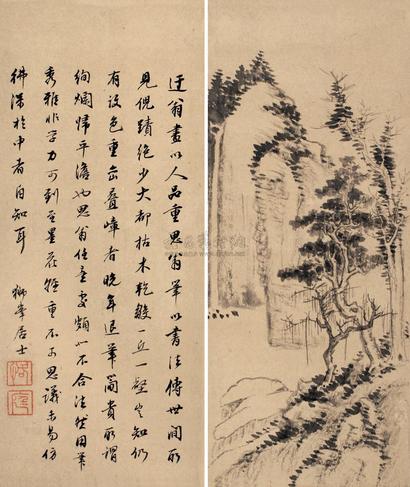 迂翁畫以人品重思翁筆以書法傳世間所
見倪蹟絕少大都枯木乾皴一丘一壑豈知仍
有設色重巒疊嶂者晚年退筆簡貴所謂
絢爛歸平澹也思翁任意處頗不合法然用筆
秀雅非學力可到至墨花雅重不可思議未易仿
彿深於中者自知耳
獅峯居士